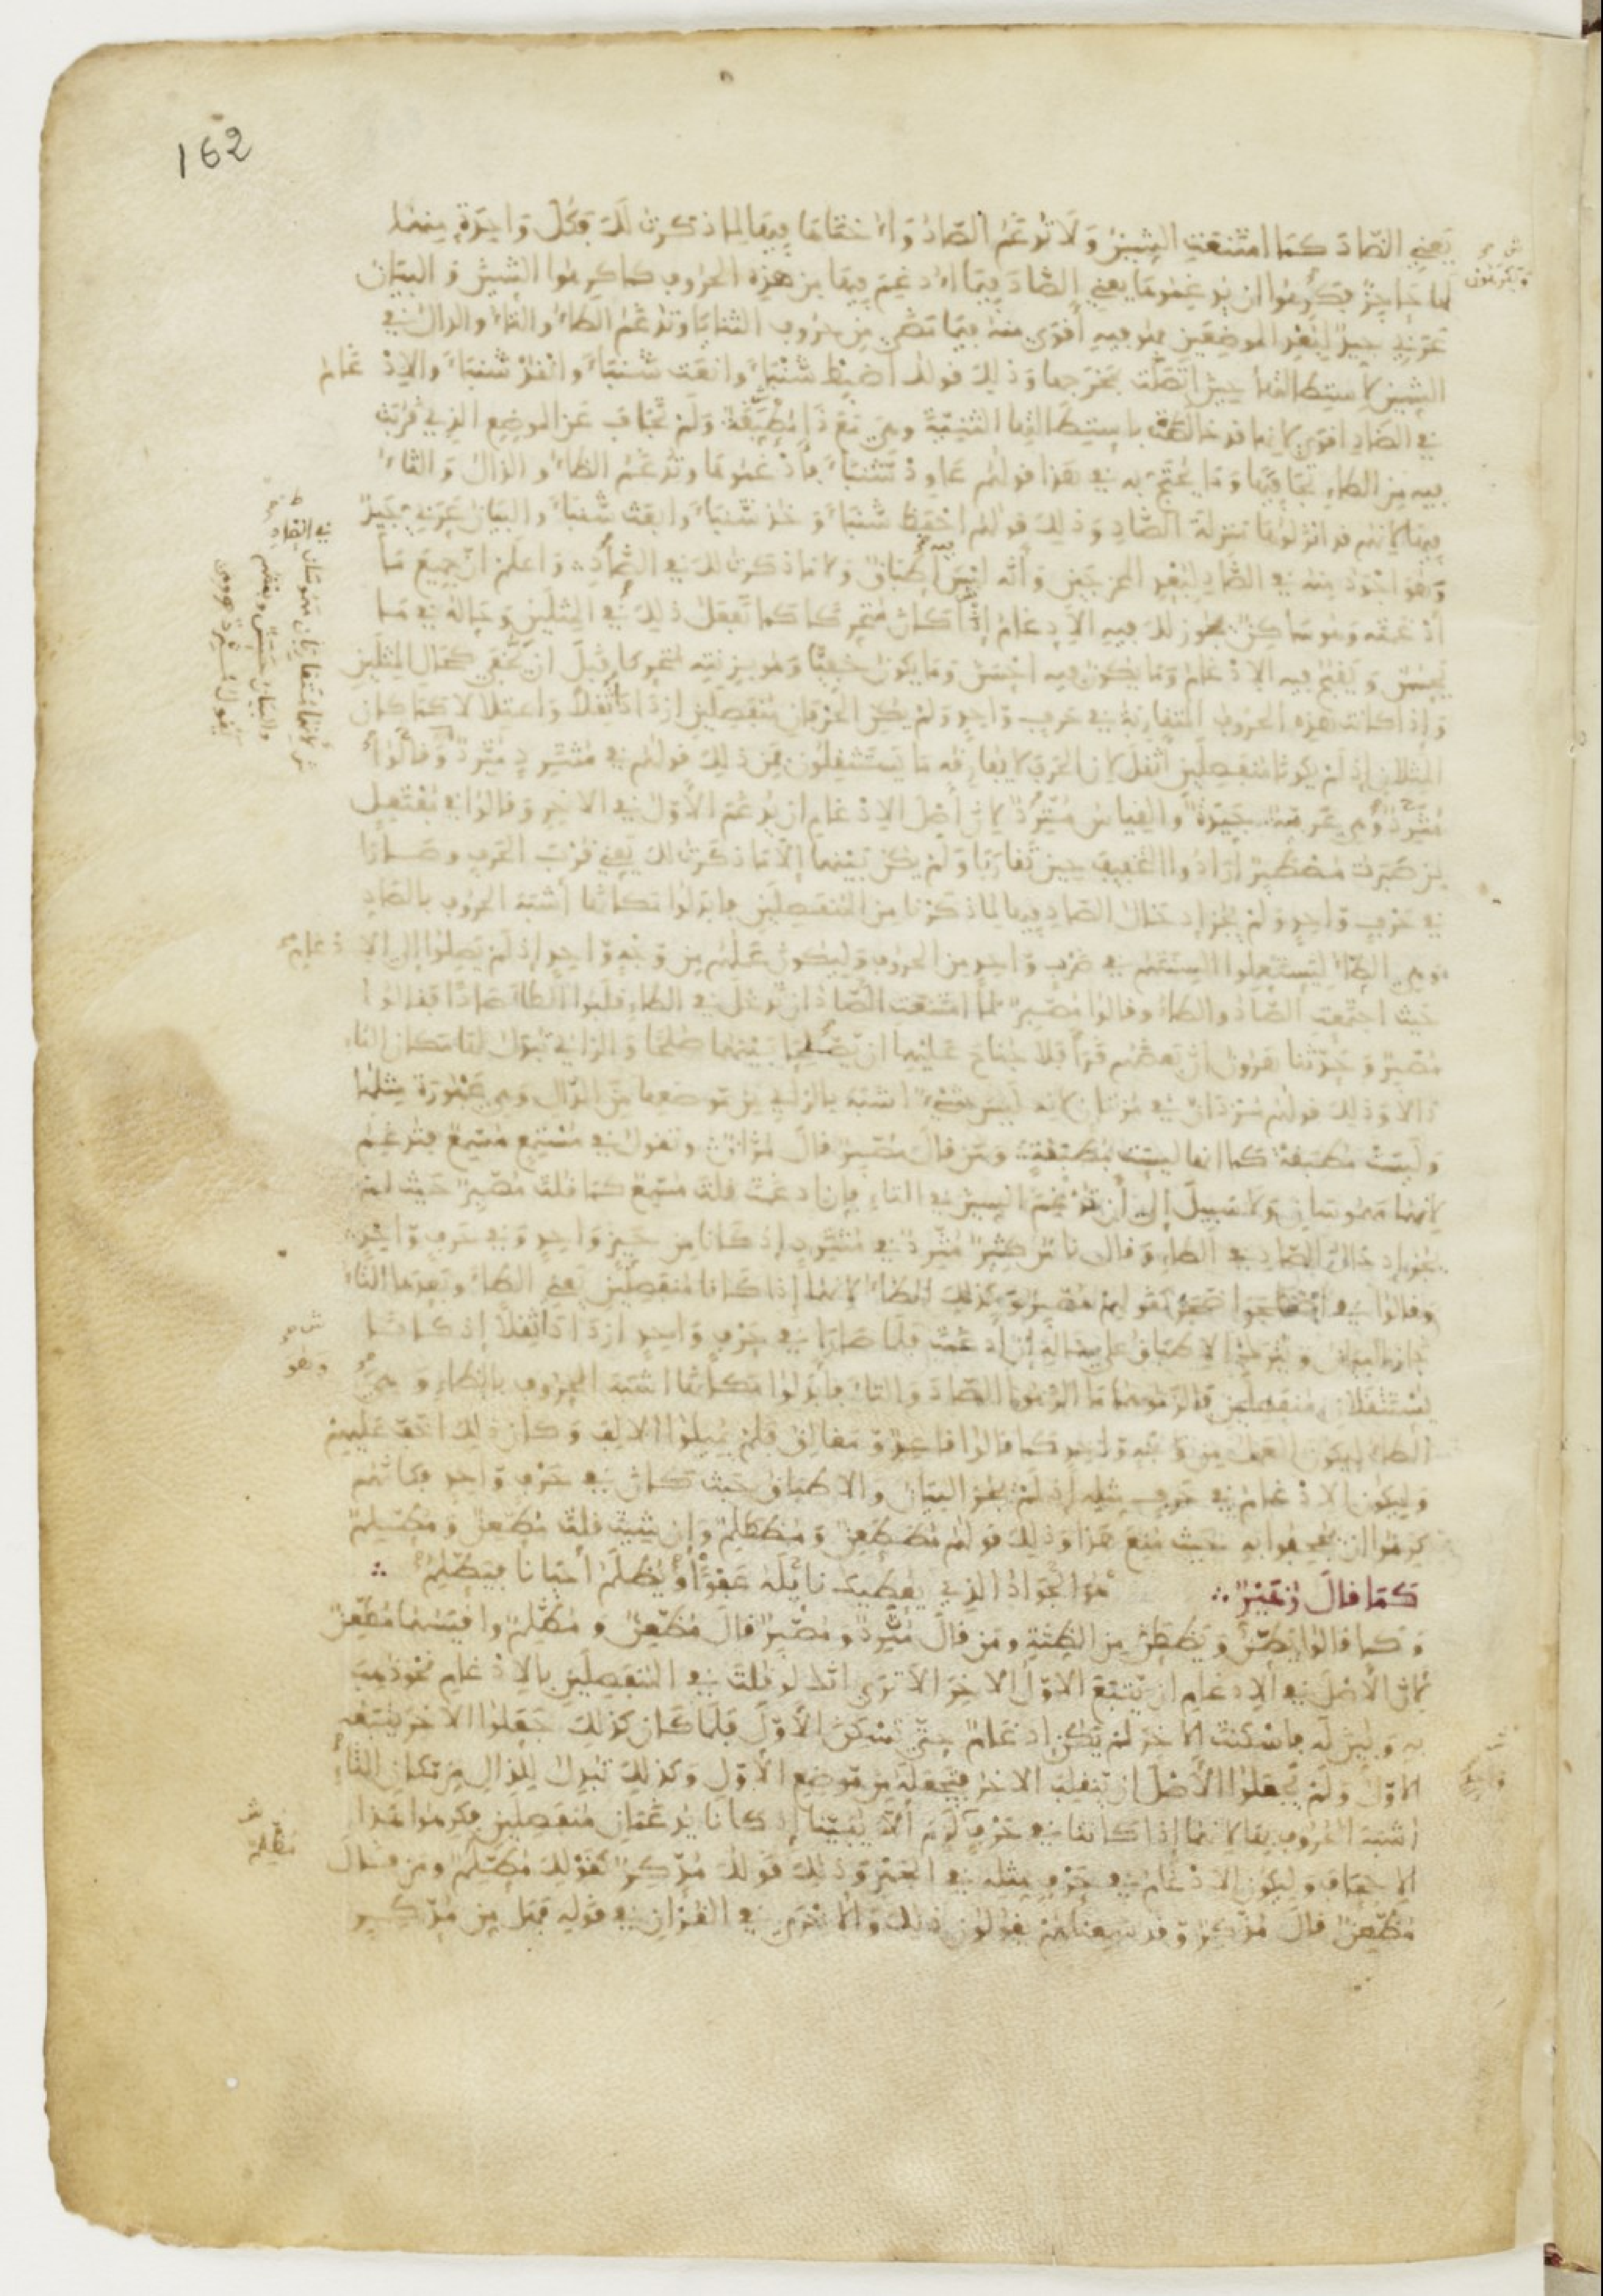 162
يعني الضاد كما امتنعت الشين ولا تدغم الصاد واختاها فيها لما ذكرت لك فكل واحدة منهما
لها حاجز فيكرهون ان يدغموها يعني الضاد فيما ادغم فيها من هذه الحروف كما كرهوا الشين والبيان
عربي جيد لبعد الموضعين فهو فيه أقوى منه فيما مضى من حروف الثنايا وتدغم الطاء والتاء والدال في
الشين لاستطالتها حين اتصلت بمخرجها وذلك قولك اضبط شنباء وانعت شنباء وانقد شنباء والادغام
في الضاد اقوى لانها قد خالطت باستطالتها الثنية وهي مع ذا مطبقة ولم تجاف عن الموضع الذي قربت
فيه من الطاء تجافيها ومما يحتج به في هذا قولهم عاود شنباء فأدغموها وتدغم الظاء والذال والثاء
فيها لانهم قد انزلوها منزلة الضاد وذلك قولهم احفظ شنباء وخذ شنباء وابعث شنباء والبيان عربي جيد
وهو اجود منه في الضاد لبعد المخرجين وأنه ليس فيه إطباق ولا ما ذكرت لك في الضاد واعلم ان جميع ما
أدغمته وهو ساكن يجوز لك فيه الادغام إذا كان متحركا كما تفعل ذلك في المثلين وحاله في ما
يحسن ويقبح فيه الادغام وما يكون فيه احسن وما يكون خفيا وهو بزنته متحركا قبل ان يخفى كحال المثلين
وإذا كانت هذه الحروف المتقاربة في حرف واحد ولم يكن الحرفان منفصلين ازدادا ثقلا واعتلالا كما كان
المثلان إذ لم يكونا منفصلين أثقل لان الحرف لا يفارقه ما يستثقلون فمن ذلك قولهم في مثترد مثرد وقالوا
متّرد وهي عربية جيدة والقياس متّرد لان أصل الادغام ان يدغم الأول في الآخر وقالوا في مفتعل
من صبرت مصطبر ارادوا التخفيف حين تقاربا ولم يكن بينهما إلا ما ذكرت لك يعني قرب الحرف وصارا
في حرف واحد ولم يجز إدخال الصاد فيها لما ذكرنا من المنفصلين فابدلوا مكانها أشبه الحروف بالصاد
وهي الطاء ليستعملوا السنتهم في ضرب واحد من الحروف وليكون عملهم من وجه واحد إذ لم يصلوا إلى الادغام
حيث اجتمعت الصاد والطاء وقالوا مصّبر لما امتنعت الصاد ان تدخل في الطاء قلبوا الطاء صادا فقالوا
مصّبر وحدثنا هرون ان بعضهم قرأ فلا جناح عليهما ان يصّلحا بينهما صلحا والزاي تبدل لها مكان التاء
دالا وذلك قولهم مزدان في مزتان لانه ليس شيء اشبه بالزاي من موضعها من الدال وهي مجهورة مثلها
وليست مطبقة كما انها ليست مطبقة ومن قال مصّبر قال مزّان وتقول في مستمع مسّمع فتدغم
لانهما مهموسان ولا سبيل إلى أن تدغم السين في التاء فإن ادغمت قلت مسّمع كما قلت مصّبر حيث لم
يجز إدخال الصاد في الطاء وقال ناس كثير مثّرد في مثترد إذ كانا من حيز واحد وفي حرف واحد
وقالوا في اضطجر اضّجر كقولهم مصّبر وكذلك الظاء لانهما إذا كانا منفصلين يعني الظاء وبعدها التاء
جاز البيان ويترك الاطباق على حاله إن ادغمت فلما صارا في حرف واحد ازدادا ثقلا إذ كانا
يستثقلان منفصلين فالزموها ما الزموا الصاد والتاء فابدلوا مكانها اشبه الحروف بالظاء وهي
الطاء ليكون العمل من وجه واحد كما قالوا قاعد ومغالق فلم يميلوا الالف وكان ذلك اخف عليهم
وليكون الادغام في حرف مثله إذ لم يجز البيان والاطباق حيث كان في حرف واحد فكأنهم
كرهوا ان يجحفوا به حيث منع هذا وذلك قولهم مظطعن ومظطلم وإن شئت قلت مطّعن ومطّلم
كما قال زهير هو الجواد الذي يعطيك نائله عفوا ويظلم أحيانا فيطّلم
وكما قالوا يطّن ويظطن من الظنة ومن قال مثّرد ومصّبر قال مظّعن ومظّلم واقيسهما مطّعن
لان الأصل في الإدغام ان يتبع الاول الآخر الا ترى انك لو قلت في المنفصلين بالادغام نحو ذهب
به وبين له فاسكنت الآخر لم يكن ادغام حتى تسكن الأول فلما كان كذلك جعلوا الآخر يتبعه
الاول ولم يجعلوا الأصل ان ينقلب الآخر فتجعله من موضع الأول وكذلك تبدل للذال من مكان التاء
اشبه الحروف بها لانهما إذا كانتا في حرف لزم ألا يبينا إذ كانا يدغمان منفصلين فكرهوا هذا
الاجحاف وليكون الادغام في حرف مثله في الجهر وذلك قولك مدّكر كقولك مطّلم ومن قال
مظّعن قال مذّكر وقد سمعناهم يقولون ذلك والاخرى في القرآن في قوله فهل من مدّكر
ويكرهون
في الضاد
لانهما متقاربان مهموسان
والبيان حسن وبعضهم
يقول مثترد وهي
وهو
مظّلم